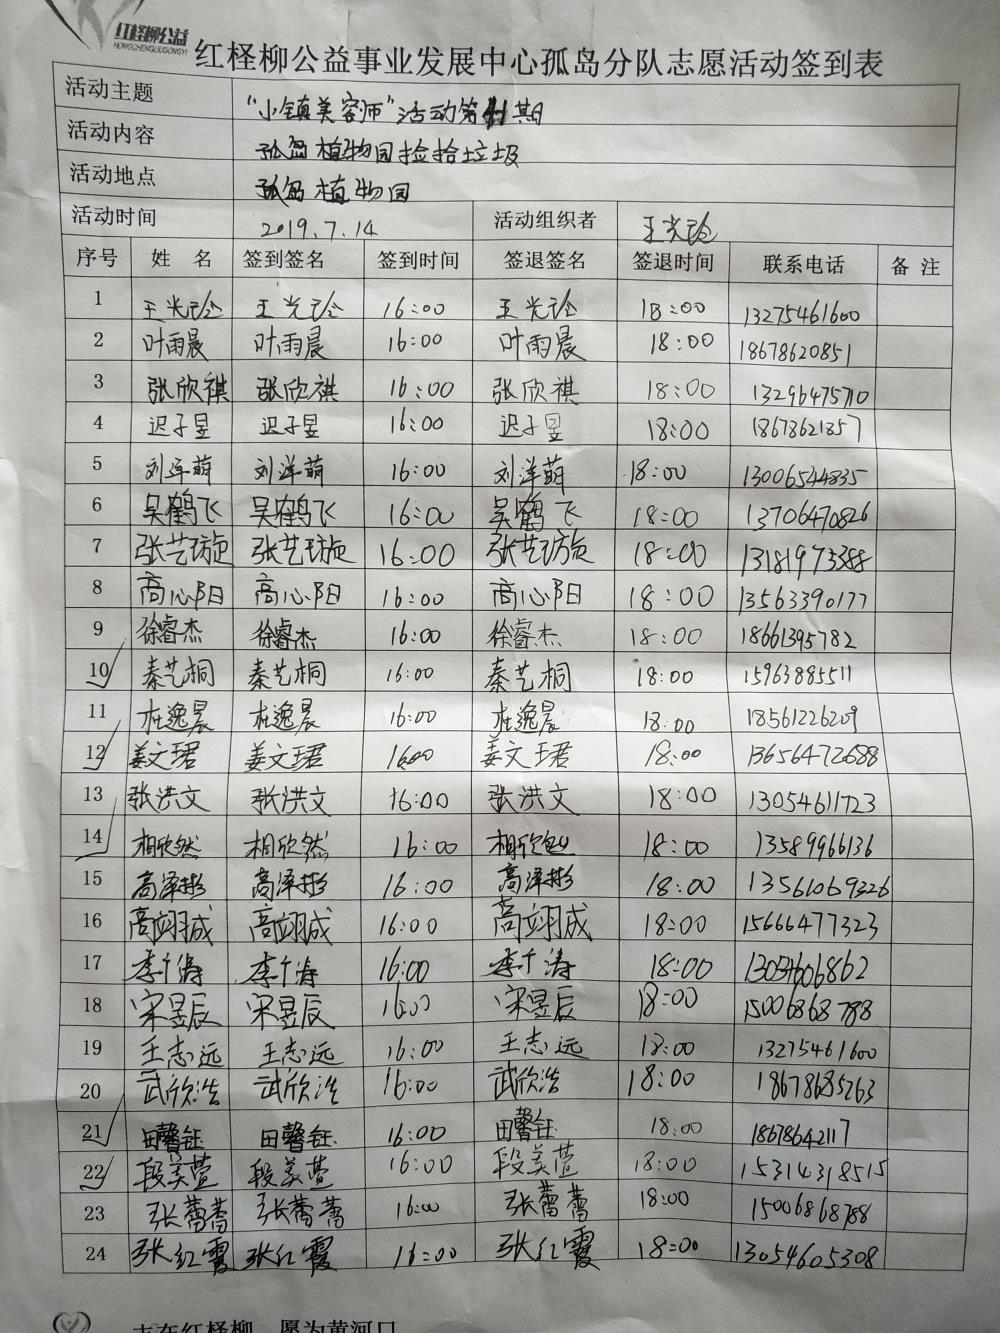 红柽柳公益
HONGCHENGLIUGONGYI
红柽柳公益事业发展中心孤岛分队志愿活动签到表
活动主题 "小镇美容师"活动第11期
活动内容 孤岛植物园捡拾垃圾
活动地点 孤岛植物园
活动时间 2019.7.14 活动组织者 王光玲
序号 姓 名 签到签名 签到时间 签退签名 签退时间 联系电话 备 注
1 王光玲 王光玲 16:00 王光玲 18:00 13275461600
2 叶雨晨 叶雨晨 16:00 叶雨晨 18:00 18678620851
3 张欣祺 张欣祺 16:00 张欣祺 18:00 13296475710
4 迟子昱 迟子昱 16:00 迟子昱 18:00 18678621857
5 刘洋萌 刘洋萌 16:00 刘洋萌 18:00 13006544835
6 吴鹤飞 吴鹤飞 16:00 吴鹤飞 18:00 13706470826
7 张艺璇 张艺璇 16:00 张艺璇 18:00 13181975388
8 高心阳 高心阳 16:00 高心阳 18:00 13563390177
9 徐睿杰 徐睿杰 16:00 徐睿杰 18:00 18661395782
10 秦艺桐 秦艺桐 16:00 秦艺桐 18:00 15963885511
11 杜逸晨 杜逸晨 16:00 杜逸晨 18:00 18561226209
12 姜文珺 姜文珺 16:00 姜文珺 18:00 13656472688
13 张洪文 张洪文 16:00 张洪文 18:00 13054611723
14 相欣然 相欣然 16:00 相欣然 18:00 13589966136
15 高泽彬 高泽彬 16:00 高泽彬 18:00 13561069326
16 高翊成 高翊成 16:00 高翊成 18:00 15666477323
17 李个涛 李个涛 16:00 李个涛 18:00
18 宋昱辰 宋昱辰 16:00 宋昱辰 18:00 15006868788
19 王志远 王志远 16:00 王志远 18:00 13275461600
20 武欣浩 武欣浩 16:00 武欣浩 18:00 18678685263
21 田馨钰 田馨钰 16:00 田馨钰 18:00 18678642117
22 段美萱 段美萱 16:00 段美萱 18:00 15314318515
23 张蕾蕾 张蕾蕾 16:00 张蕾蕾 18:00 15006868788
24 张红霞 张红霞 16:00 张红霞 18:00 13054605308
志在红柽柳 愿为黄河口